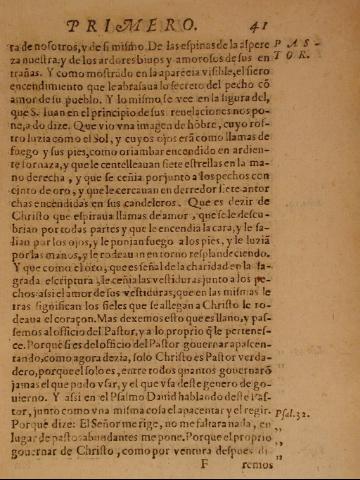 PRIMERO. 41
ra de nosotros, y de si mismo. De las espinas de la aspere PAS-
za nuestra: y de los ardores biuos y amorosos de sus en TOR.
trañas. Y como mostrado en la aparēcia visible, el fiero
encendimiento que le abrasaua lo secreto del pecho cō
amor de su pueblo. Y lo mismo, se vee en la figura del,
que S. Iuan en el principio de sus reuelaciones nos po-
ne, a do dize. Que vio vna imagen de hōbre, cuyo ros-
tro luzia como el Sol, y cuyos ojos erā como llamas de
fuego y sus pies, como oriambar encendido en ardien-
te fornaza, y que le centelleauan siete estrellas en la ma-
no derecha, y que se ceñia por junto a los pechos con
cinto de oro, y que le cercauan en derredor siete antor
chas encēdidas en sus candeleros. Que es dezir de
Christo que espiraua llamas de amor, que se le descu-
brian por todas partes y que le encendia la cara, y le sa-
lian por los ojos, y le ponian fuego a los pies, y le luziā
por las manos, y le rodeauan en torno resplandeciendo.
Y que como el oro, que es señal de la charidad en la sa-
grada escriptura, le ceñia las vestiduras junto a los pe-
chos: assi el amor de sus vestiduras, que en las mismas le
tras significan los fieles que se allegan a Christo le ro-
deaua el coraçon. Mas dexemos esto que es llano, y pas-
semos al officio del Pastor, y a lo proprio q̄ le pertenes-
ce. Porque si es del officio del Pastor gouernar apascen-
tando, como agora dezia, solo Christo es Pastor verda-
dero, porque el solo es, entre todos quantos gouernarō
jamas el que pudo vsar, y el que vsa deste genero de go-
uierno. Y assi en el Psalmo Dauid hablando deste Pas-
tor, junto como vna misma cosa el apacentar y el regir. Psal. 32.
Porque dize: El Señor me rige, no me faltara nada, en „
lugar de pastos abundantes me pone. Porque el proprio „
gouernar de Christo, como por ventura despues di- „
F remos